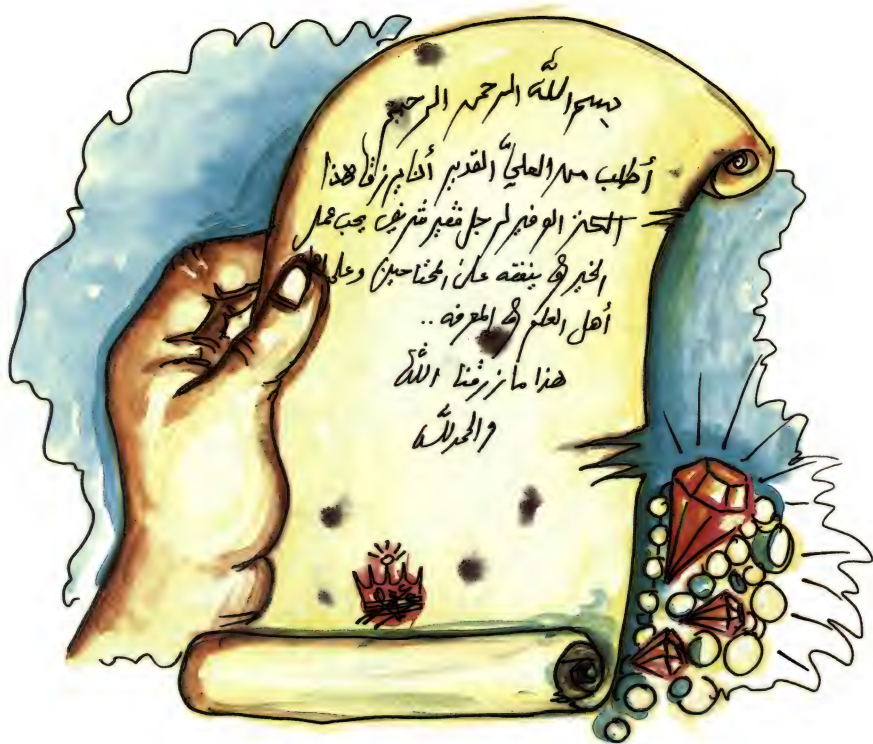 بسم اللّه الرحمن الرحيم
أطلب من العليّ القدير أن يرزق هذا
الكنز الوفير لرجل فقير شريف يحب عمل
الخير و ينفقه على المحتاجين وعلى
أهل العلم و المعرفه ..
هذا ما رزقنا اللّه
والحمد للّه